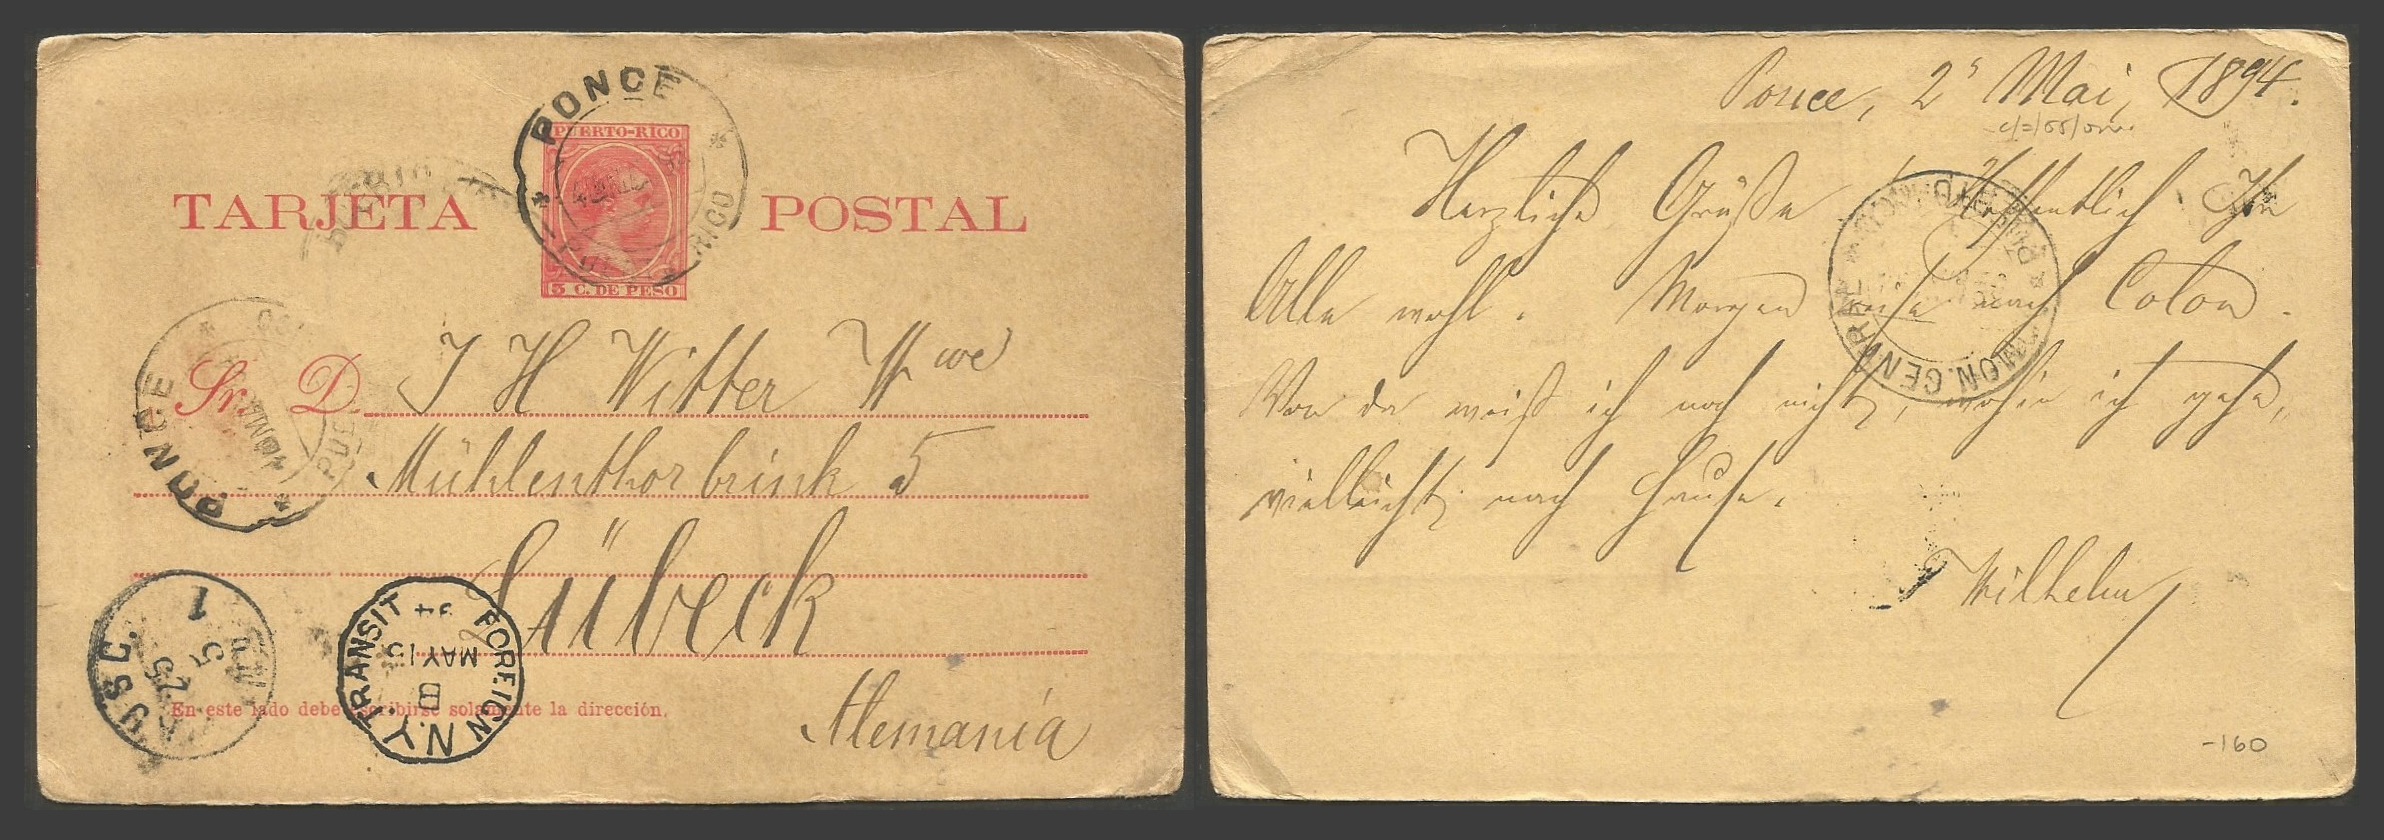 PONCE
PUERTO-RICO
TARJETA POSTAL
RICO
3 C. DE PESO
Sr. D. J H Witter Wwe
PONCE
Mühlenthorbrink 5
Lübeck
TRANSIT 94 FOREIGN
MAY 15
N.Y.
AUSG.
1
5
En este lado debe escribirse solamente la dirección.
Alemania
Ponce, 2 Mai, 1894.
Herzliche Grüße! Hoffentlich Ihr
Alle wohl. Morgen reise nach Colon.
Von da weiß ich noch nicht, wohin ich gehe,
vielleicht nach Hause.
Wilhelm
CENTRAL
-160